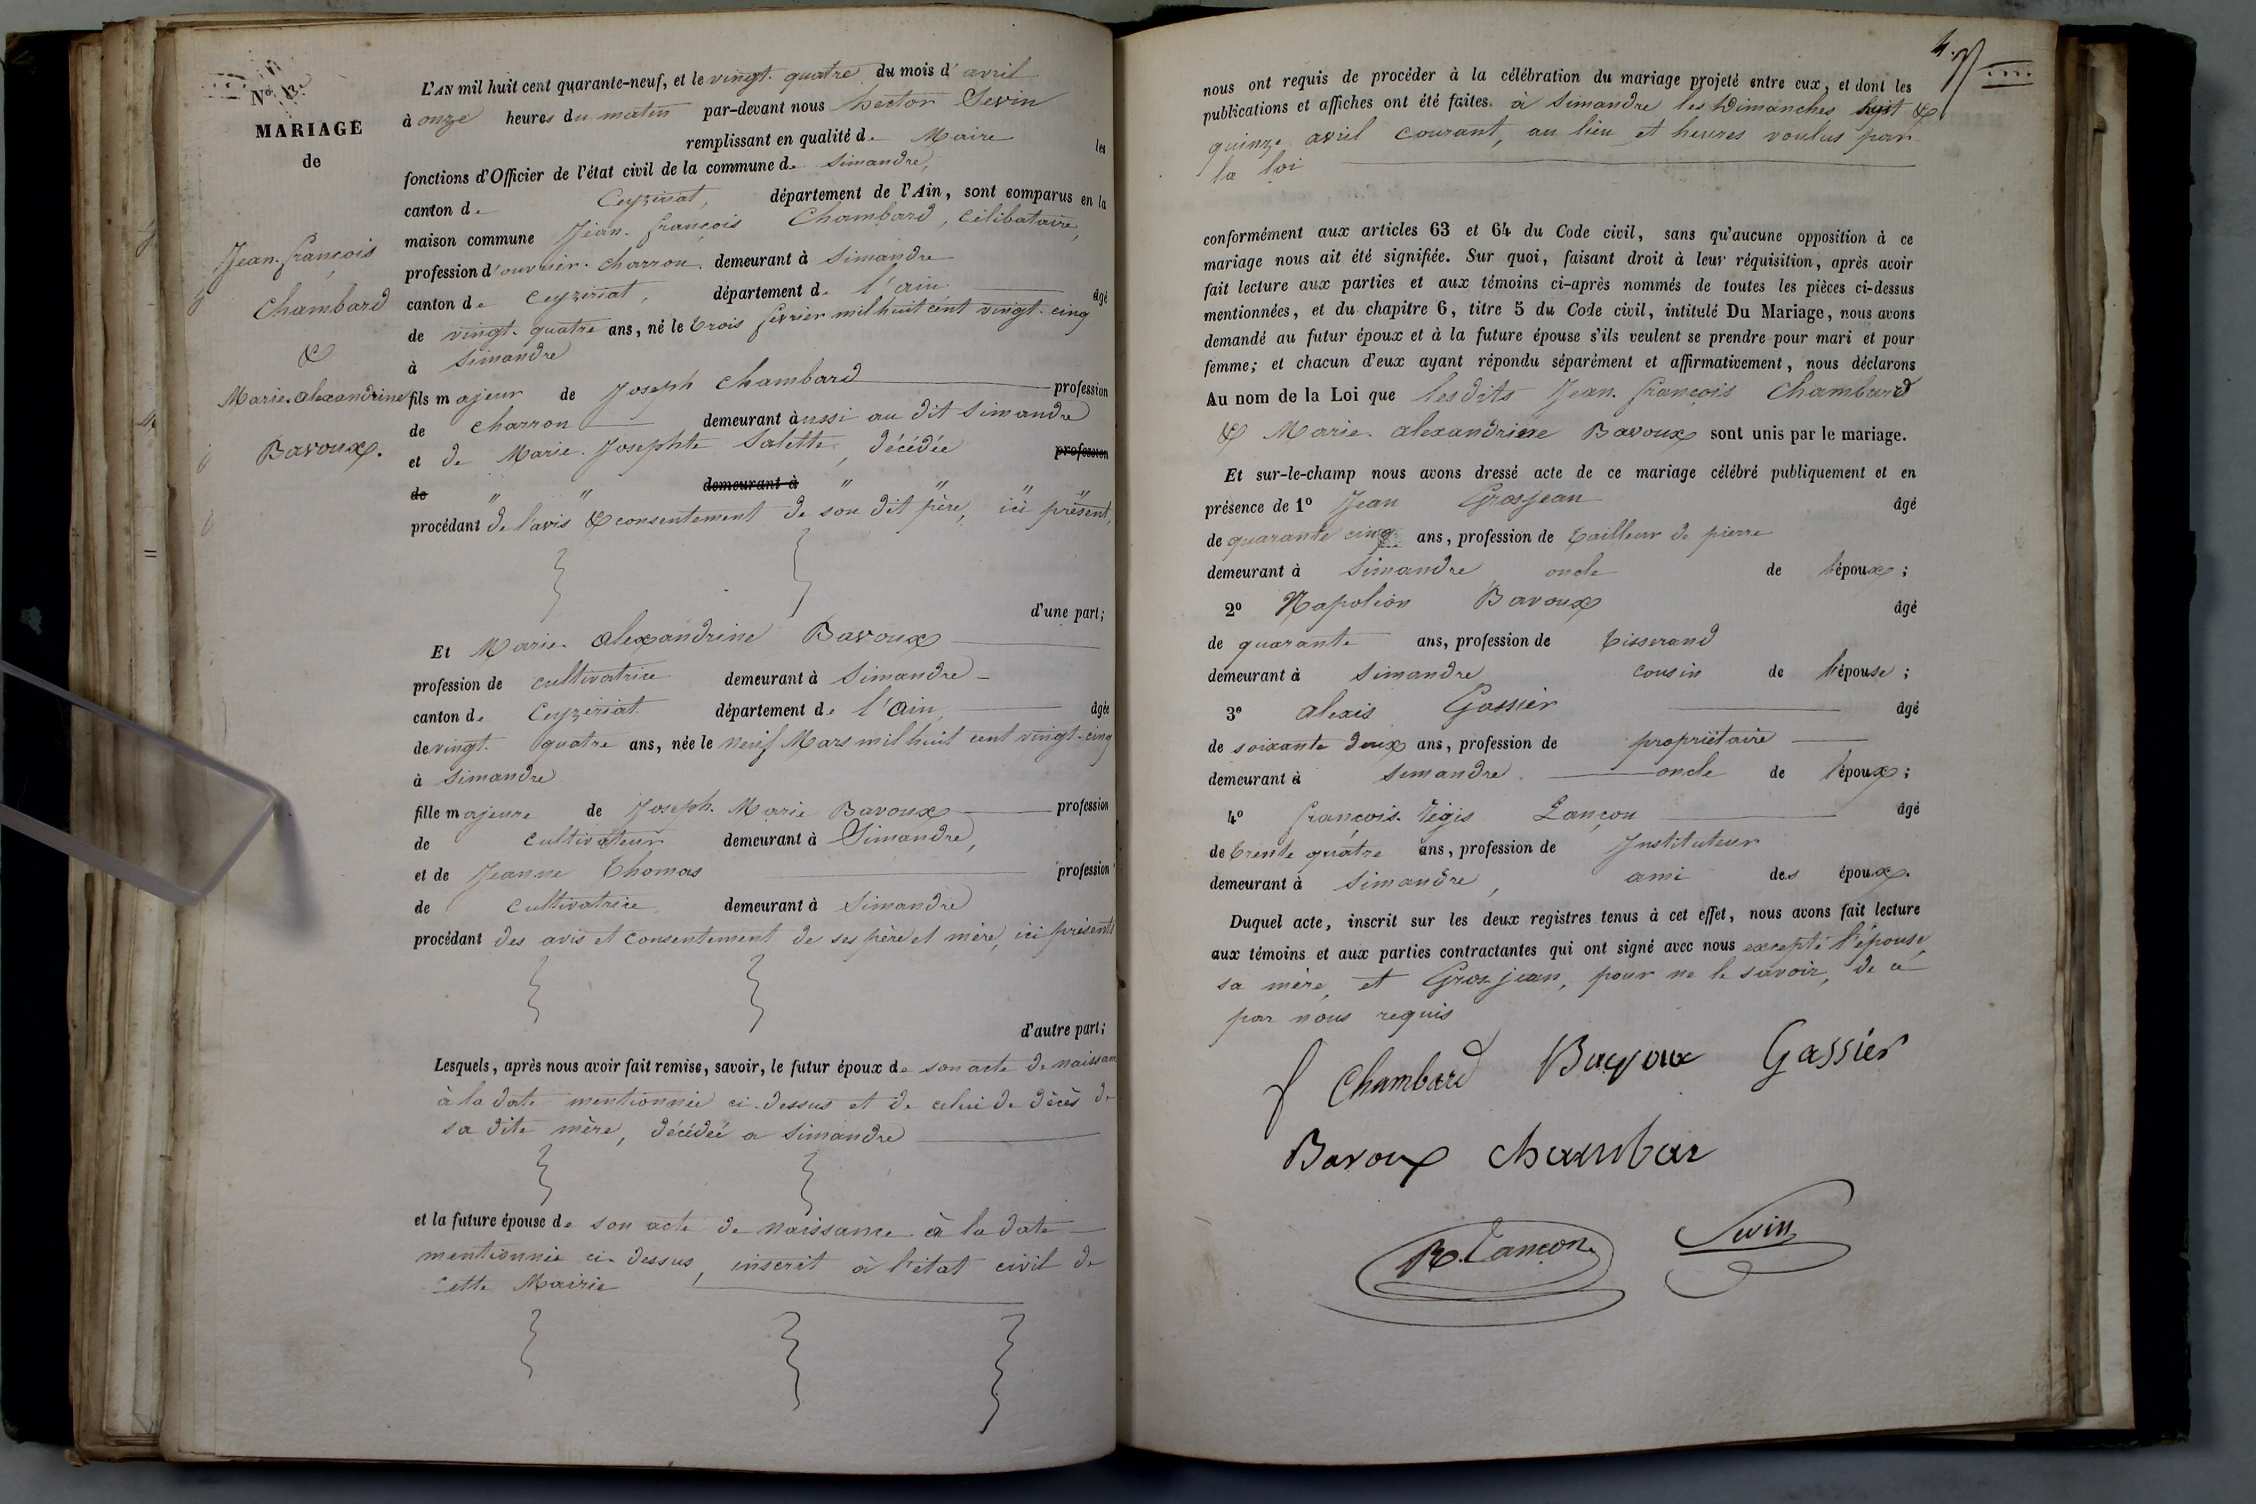 N° 13.
MARIAGE
de
Jean-françois
Chambard
&
Marie-alexandrine
Bavoux.
L'AN mil huit cent quarante-neuf, et le vingt-quatre du mois d'avril
à onze heures du matin par-devant nous hector Sevin
remplissant en qualité de Maire les
fonctions d'Officier de l'état civil de la commune de Simandre,
canton de Ceyzériat, département de l'Ain, sont comparus en la
maison commune Jean-françois Chambard, célibataire,
profession d'ouvrier-charron demeurant à Simandre
canton de Ceyzériat, département de l'ain âgé
de vingt-quatre ans, né le trois février mil huit cent vingt-cinq
à Simandre
fils majeur de Joseph Chambard profession
de charron demeurant àussi au dit Simandre
et de Marie-Josephte Salette, décédée profession
de " " demeurant à " " " "
procédant de l'avis & consentement de son dit père, ici présent,
d'une part;
Et Marie-alexandrine Bavoux
profession de cultivatrice demeurant à Simandre
canton de Ceyzériat département de l'ain, âgée
de vingt-quatre ans, née le neuf Mars mil huit cent vingt-cinq
à Simandre
fille majeure de Joseph-Marie Bavoux profession
de cultivateur demeurant à Simandre,
et de Jeanne Thomas profession
de cultivatrice demeurant à Simandre
procédant des avis et consentement de ses père et mère, ici présents
d'autre part;
Lesquels, après nous avoir fait remise, savoir, le futur époux de son acte de naissance
à la date mentionnée ci-dessus et de celui de décès de
sa dite mère, décédée a Simandre
et la future épouse de son acte de naissance à la date
mentionnée ci-dessus, inscrit à l'état civil de
cette Mairie
nous ont requis de procéder à la célébration du mariage projeté entre eux, et dont les
publications et affiches ont été faites à Simandre les Dimanches huit &
quinze avril courant, au lieu et heures voulus par
la loi
conformément aux articles 63 et 64 du Code civil, sans qu'aucune opposition à ce
mariage nous ait été signifiée. Sur quoi, faisant droit à leur réquisition, après avoir
fait lecture aux parties et aux témoins ci-après nommés de toutes les pièces ci-dessus
mentionnées, et du chapitre 6, titre 5 du Code civil, intitulé Du Mariage, nous avons
demandé au futur époux et à la future épouse s'ils veulent se prendre pour mari et pour
femme; et chacun d'eux ayant répondu séparément et affirmativement, nous déclarons
Au nom de la Loi que lesdits Jean-françois Chambard
& Marie-alexandrine Bavoux sont unis par le mariage.
Et sur-le-champ nous avons dressé acte de ce mariage célébré publiquement et en
présence de 1° Jean Grosjean âgé
de quarante cinq ans, profession de tailleur de pierre
demeurant à Simandre oncle de l'époux;
2° Napoléon Bavoux âgé
de quarante ans, profession de tisserand
demeurant à Simandre cousin de l'épouse;
3° alexis Gassier âgé
de soixante deux ans, profession de propriétaire
demeurant à Simandre oncle de l'époux;
4° françois-régis Lançon âgé
de trente quatre ans, profession de Instituteur
demeurant à Simandre, ami des époux.
Duquel acte, inscrit sur les deux registres tenus à cet effet, nous avons fait lecture
aux témoins et aux parties contractantes qui ont signé avec nous excepté l'épouse,
sa mère, et Grosjean, pour ne le savoir, de ce
par nous requis
f Chambard Bavoux Gassier
Bavoux chambar
R. Lançon Sevin